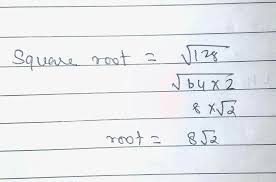 Square root = √128
√64×2
8×√2
root = 8√2